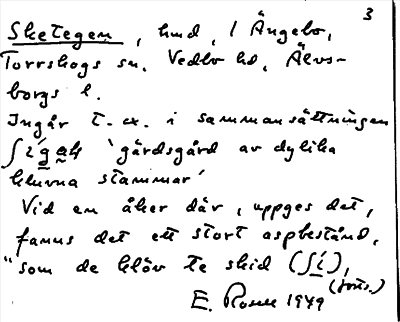 3
Sketegen, hmd, 1 Ängebo,
Torrskogs sn. Vedbo hd, Älvs-
borgs l.
Ingår t. ex. i sammansättningen
'gärdsgård av dylika
kluvna stammar'
Vid en åker där, uppges det,
fanns det ett stort aspbestånd,
"som de klöv te skid (ʃí),
(forts.)
E. Rosell 1949